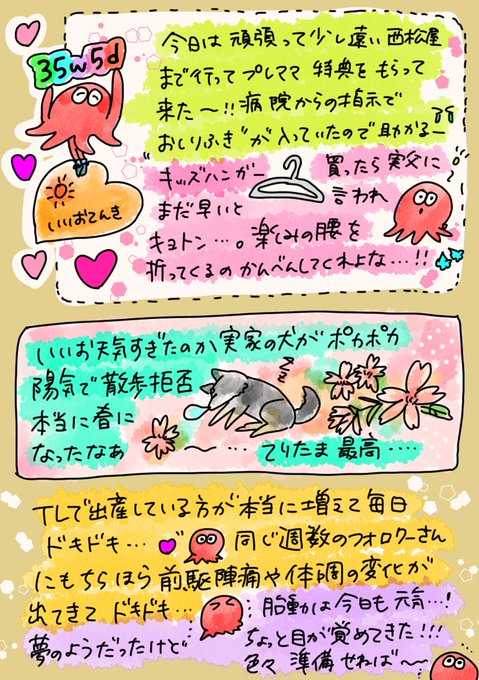 35w5d
いいおてんき
今日は頑張って少し遠い西松屋
まで行ってプレママ特典をもらって
来た〜!!病院からの指示で
"おしりふき"が入っていたので助かるー
キッズハンガー 買ったら実父に
まだ早いと 言われ
キョトン…。楽しみの腰を
折ってくるのかんべんしてくれよな…!!
いいお天気すぎたのか実家の犬がポカポカ
陽気で散歩拒否
本当に春に
なったなぁ 〜… てりたま最高……
TLで出産している方が本当に増えて毎日
ドキドキ… 同じ週数のフォロワーさん
にもちらほら前駆陣痛や体調の変化が
出てきてドキドキ… 胎動は今日も元気…!
夢のようだったけど ちょっと目が覚めてきた!!!
色々準備せねば〜